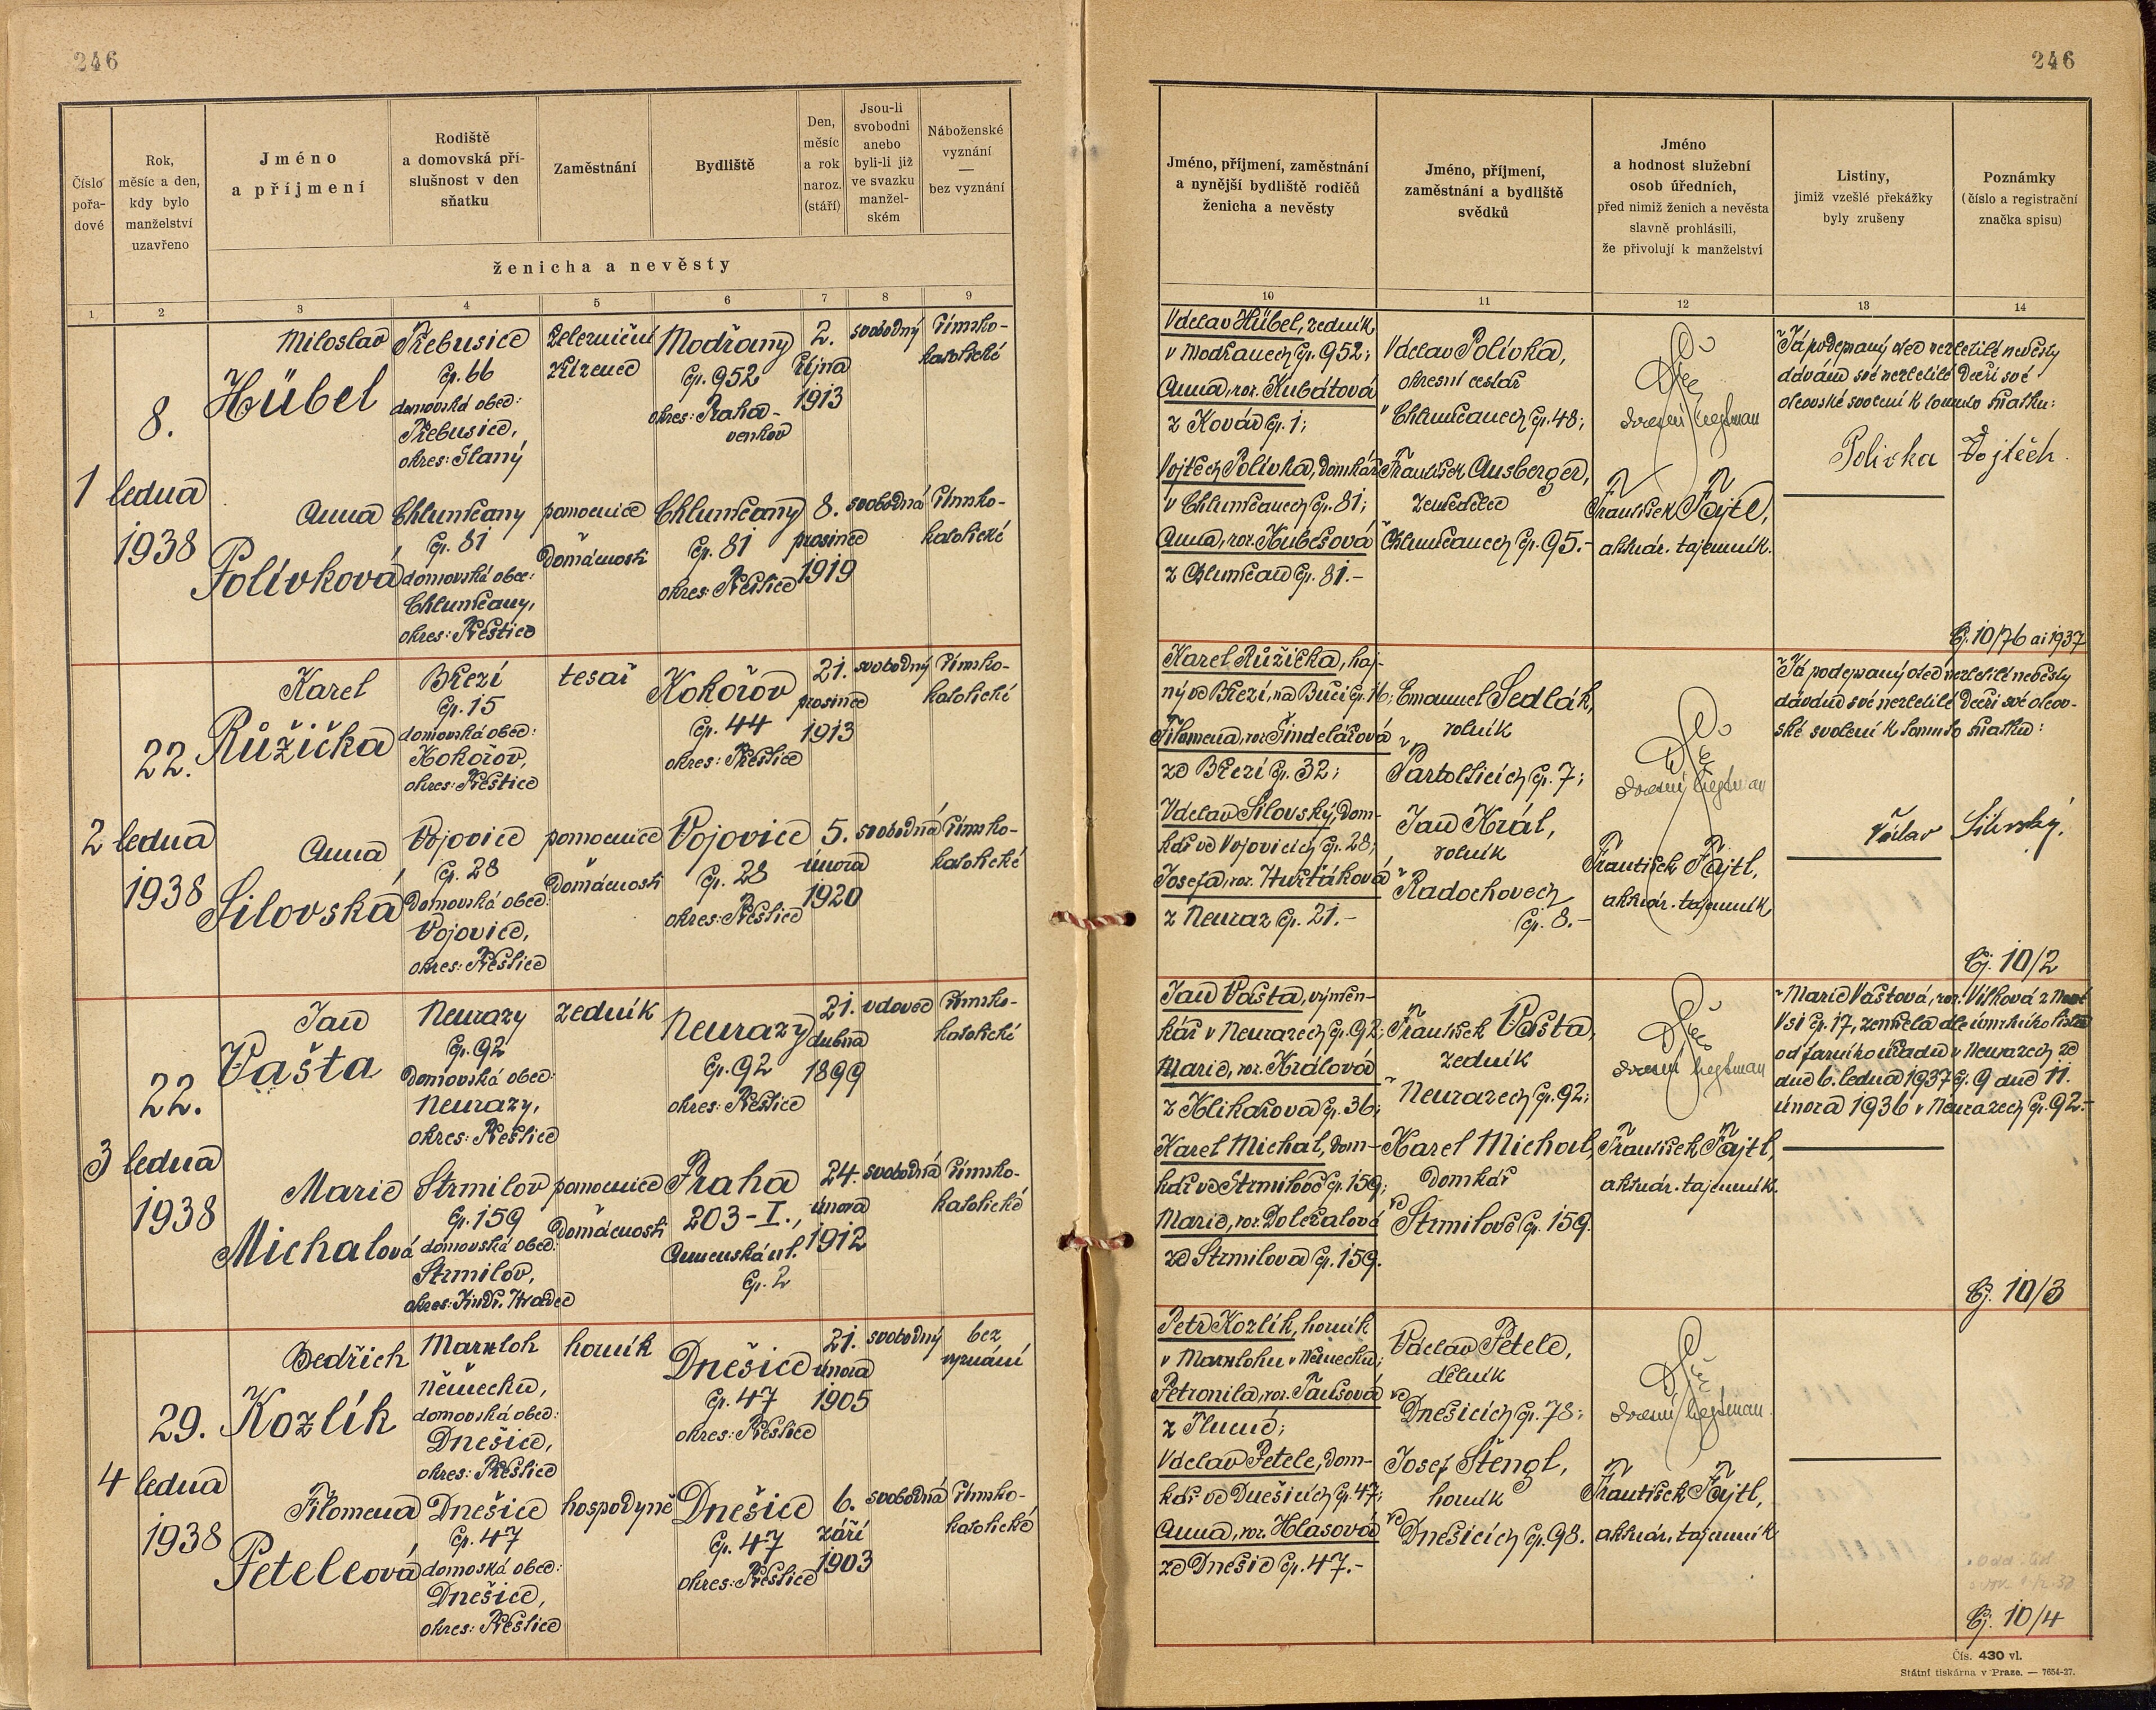 246
246
Číslo pořa-dové
Rok, měsíc a den, kdy bylo manželství uzavřeno
Jméno a příjmení
Rodiště a domovská pří-slušnost v den sňatku
Zaměstnání
Bydliště
Den, měsíc a rok naroz. (stáří)
Jsou-li svobodni anebo byli-li již ve svazku manžel-ském
Náboženské vyznání — bez vyznání
ženicha a nevěsty
1 2 3 4 5 6 7 8 9
Jméno, příjmení, zaměstnání a nynější bydliště rodičů ženicha a nevěsty
Jméno, příjmení, zaměstnání a bydliště svědků
Jméno a hodnost služební osob úředních, před nimiž ženich a nevěsta slavně prohlásili, že přivolují k manželství
Listiny, jimiž vzešlé překážky byly zrušeny
Poznámky (číslo a registrační značka spisu)
10 11 12 13 14
1
8.
ledna
1938
Miloslav
Hübel
Třebusice
čp. 66
domovská obec:
Třebusice,
okres: Slaný
železniční
zřízenec
Modřany
čp. 952
okres: Praha-
venkov
2.
října
1913
svobodný
římsko-
katolické
Anna
Polívková
Chlumčany
čp. 81
domovská obec:
Chlumčany,
okres: Přeštice
pomocnice
v domácnosti
Chlumčany
čp. 81
okres: Přeštice
8.
prosince
1919
svobodná
římsko-
katolické
Václav Hübel, zedník
v Modřanech čp. 952;
Anna, roz. Kubátová
z Kovár čp. 1;
Vojtěch Polívka, domkář
v Chlumčanech čp. 81;
Anna, roz. Kubešová
z Chlumčan čp. 81.-
Václav Polívka,
okresní cestář
v Chlumčanech čp. 48;
František Ausberger,
zemědělec
v Chlumčanech čp. 95.-
okresní hejtman
František Fajtl,
aktuár. tajemník.
Já podepsaný otec nezletilé nevěsty
dávám své nezletilé dceři své
otcovské svolení k tomuto sňatku:
Polívka Vojtěch
Čj. 10/76 ai 1937
2
22.
ledna
1938
Karel
Růžička
Březí
čp. 15
domovská obec:
Kokořov,
okres: Přeštice
tesař
Kokořov
čp. 44
okres: Přeštice
21.
prosince
1913
svobodný
římsko-
katolické
Anna
Silovská
Vojovice
čp. 28
domovská obec:
Vojovice,
okres: Přeštice
pomocnice
v domácnosti
Vojovice
čp. 28
okres: Přeštice
5.
února
1920
svobodná
římsko-
katolické
Karel Růžička, haj-
ný ve Březí, na Buči čp. 16;
Filomena, roz. Šindelářová
ze Březí čp. 32;
Václav Silovský, dom-
kář ve Vojovicích čp. 28;
Josefa, roz. Huřťáková
z Neuraz čp. 21.-
Emanuel Sedlák,
rolník
v Partolticích čp. 7;
Jan Král,
rolník
v Radochovech
čp. 8.-
okresní hejtman
František Fajtl,
aktuár. tajemník
Já podepsaný otec nezletilé nevěsty
dávám své nezletilé dceři své otcov-
ské svolení k tomuto sňatku:
Václav Silovský.
Čj. 10/2
3
22.
ledna
1938
Jan
Vašta
Neurazy
čp. 92
domovská obec:
Neurazy,
okres: Přeštice
zedník
Neurazy
čp. 92
okres: Přeštice
21.
dubna
1899
vdovec
římsko-
katolické
Marie
Michalová
Strmilov
čp. 159
domovská obec:
Strmilov,
okres: Jindř. Hradec
pomocnice
v domácnosti
Praha
203-I.,
Annenská ul.
čp. 2
24.
února
1912
svobodná
římsko-
katolické
Jan Vašta, výměn-
kář v Neurazech čp. 92;
Marie, roz. Králová
z Klikařova čp. 36;
Karel Michal, dom-
kář ve Strmilově čp. 159;
Marie, roz. Doležalová
ze Strmilova čp. 159.
František Vašta,
zedník
v Neurazech čp. 92;
Karel Michal,
domkář
ve Strmilově čp. 159.
okresní hejtman
František Fajtl,
aktuár. tajemník.
Marie Vaštová, roz. Vlková z Nové
Vsi čp. 17, zemřela dle úmrtního listu
od farního úřadu v Neurazech ze
dne 6. ledna 1937 čj. 9 dne 11.
února 1936 v Neurazech čp. 92.-
Čj. 10/3
4
29.
ledna
1938
Bedřich
Kozlík
Marxloh
v Německu,
domovská obec:
Dnešice,
okres: Přeštice
horník
Dnešice
čp. 47
okres: Přeštice
21.
února
1905
svobodný
bez
vyznání
Filomena
Peteleová
Dnešice
čp. 47
domoská obec:
Dnešice,
okres: Přeštice
hospodyně
Dnešice
čp. 47
okres: Přeštice
6.
září
1903
svobodná
římsko-
katolické
Petr Kozlík, horník
v Marxlohu v Německu;
Petronila, roz.
z Tlucné;
Václav Petele, dom-
kář ve Dnešicích čp. 47;
Anna, roz. Hlasová
ze Dnešic čp. 47.-
Václav Petele,
dělník
ve Dnešicích čp. 78;
Josef Štengl,
horník
ve Dnešicích čp. 98.
okresní hejtman.
František Fajtl,
aktuár. tajemník
Čj. 10/4
Čís. 430 vl.
Státní tiskárna v Praze. — 7654-27.